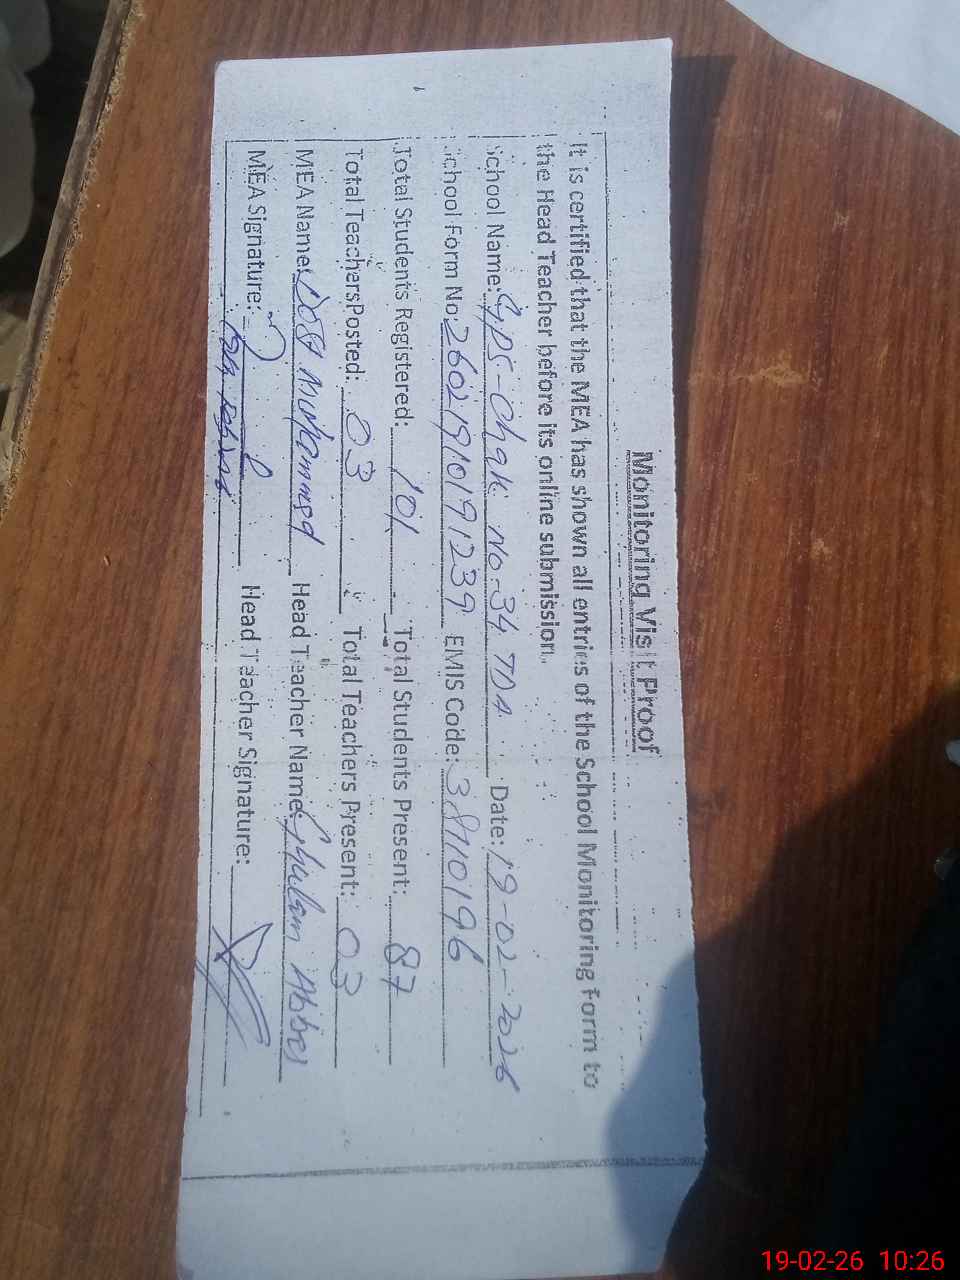 Monitoring Visit Proof
It is certified that the MEA has shown all entries of the School Monitoring Form to
the Head Teacher before its online submission.
School Name: GPS-Chak No-34 TDA Date: 19-02-2026
School Form No: 26021910191239 EMIS Code: 38710196
Total Students Registered: 101 Total Students Present: 87
Total Teachers Posted: 03 Total Teachers Present: 03
MEA Name: Dost Muhammad Head Teacher Name: Ghulam Abbas
MEA Signature: Head Teacher Signature:
19-02-26 10:26